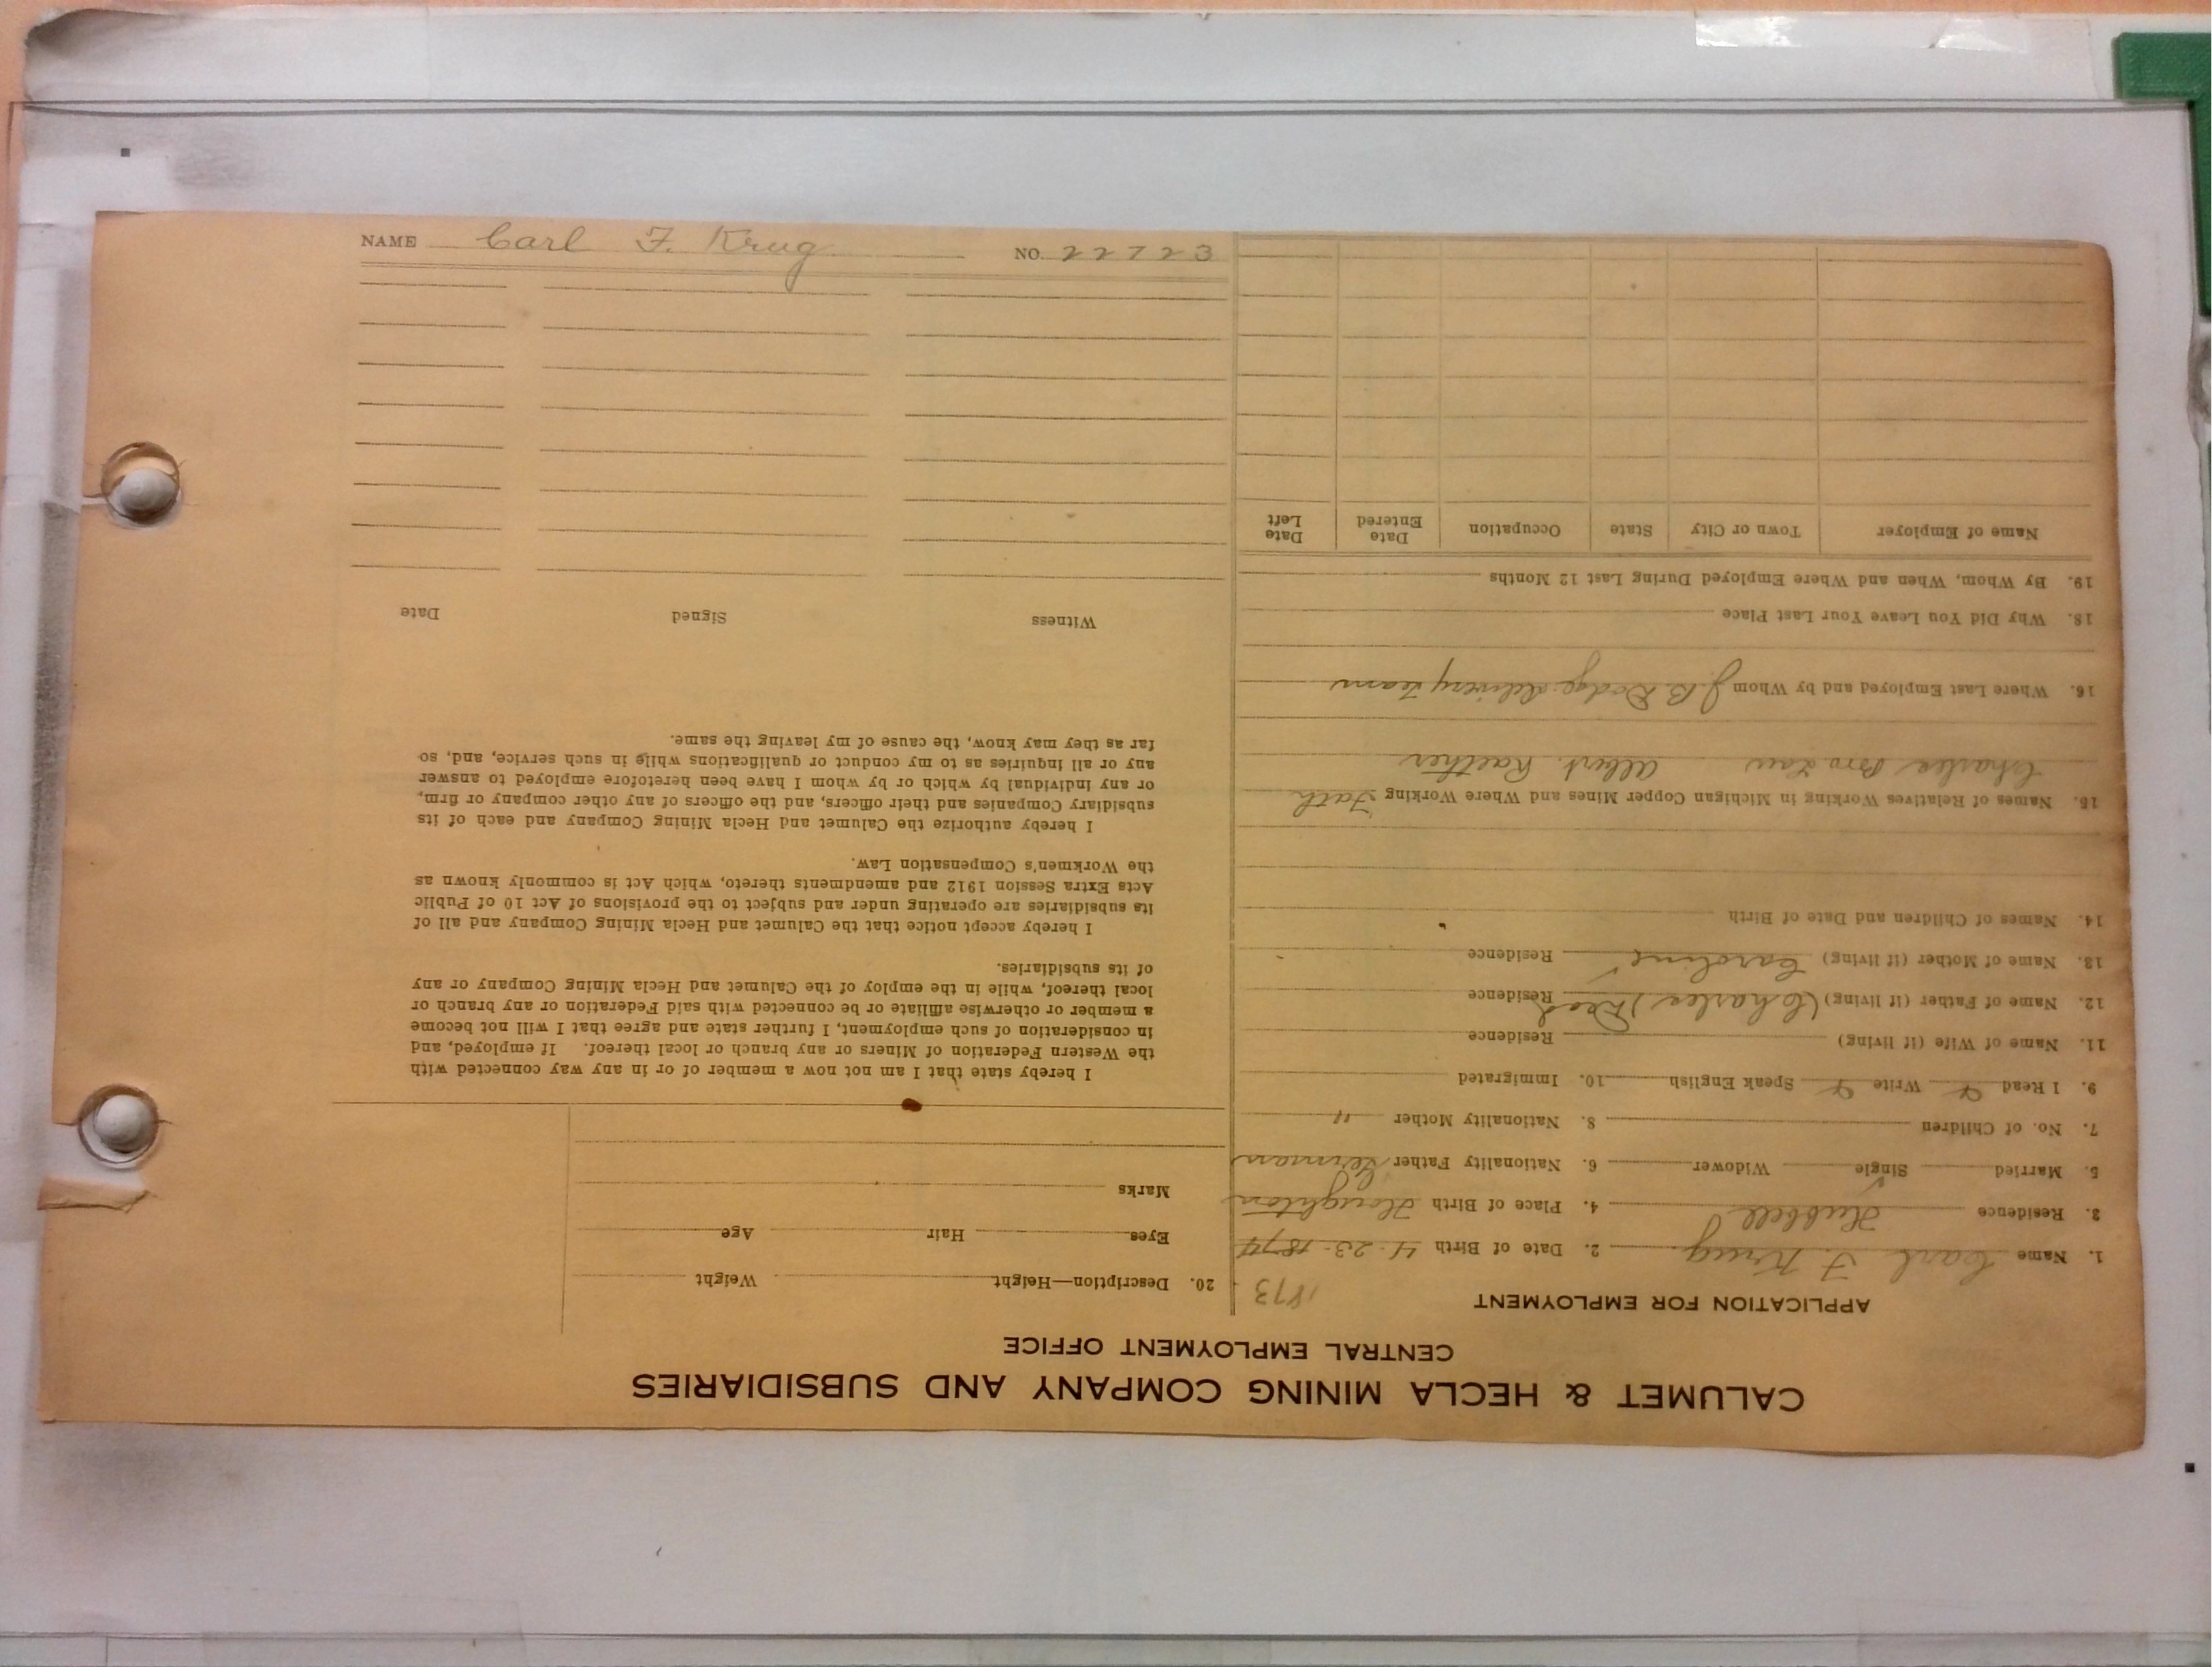 NAME Carl F. Krug NO. 22723
CALUMET & HECLA MINING COMPANY AND SUBSIDIARIES
CENTRAL EMPLOYMENT OFFICE
APPLICATION FOR EMPLOYMENT
1873
1. Name Carl F. Krug 2. Date of Birth 4-23-1874
3. Residence Hubbell 4. Place of Birth Houghton
5. Married Single ✓ Widower 6. Nationality Father German
7. No. of Children 8. Nationality Mother "
9. I Read Write Speak English 10. Immigrated
11. Name of Wife (if living) Residence
12. Name of Father (if living) (Charles) Dead Residence
13. Name of Mother (if living) Caroline Residence
14. Names of Children and Date of Birth
15. Names of Relatives Working in Michigan Copper Mines and Where Working Fath
Charles Bro Law Albert Raether
16. Where Last Employed and by Whom J. B. Dodge delivery team
18. Why Did You Leave Your Last Place
19. By Whom, When and Where Employed During Last 12 Months
Name of Employer Town or City State Occupation Date Entered Date Left
20. Description—Height Weight
Eyes Hair Age
Marks
I hereby state that I am not now a member of or in any way connected with
the Western Federation of Miners or any branch or local thereof. If employed, and
in consideration of such employment, I further state and agree that I will not become
a member or otherwise affiliate or be connected with said Federation or any branch or
local thereof, while in the employ of the Calumet and Hecla Mining Company or any
of its subsidiaries.
I hereby accept notice that the Calumet and Hecla Mining Company and all of
its subsidiaries are operating under and subject to the provisions of Act 10 of Public
Acts Extra Session 1912 and amendments thereto, which Act is commonly known as
the Workmen's Compensation Law.
I hereby authorize the Calumet and Hecla Mining Company and each of its
subsidiary Companies and their officers, and the officers of any other company or firm,
or any individual by which or by whom I have been heretofore employed to answer
any or all inquiries as to my conduct or qualifications while in such service, and, so
far as they may know, the cause of my leaving the same.
Witness Signed Date